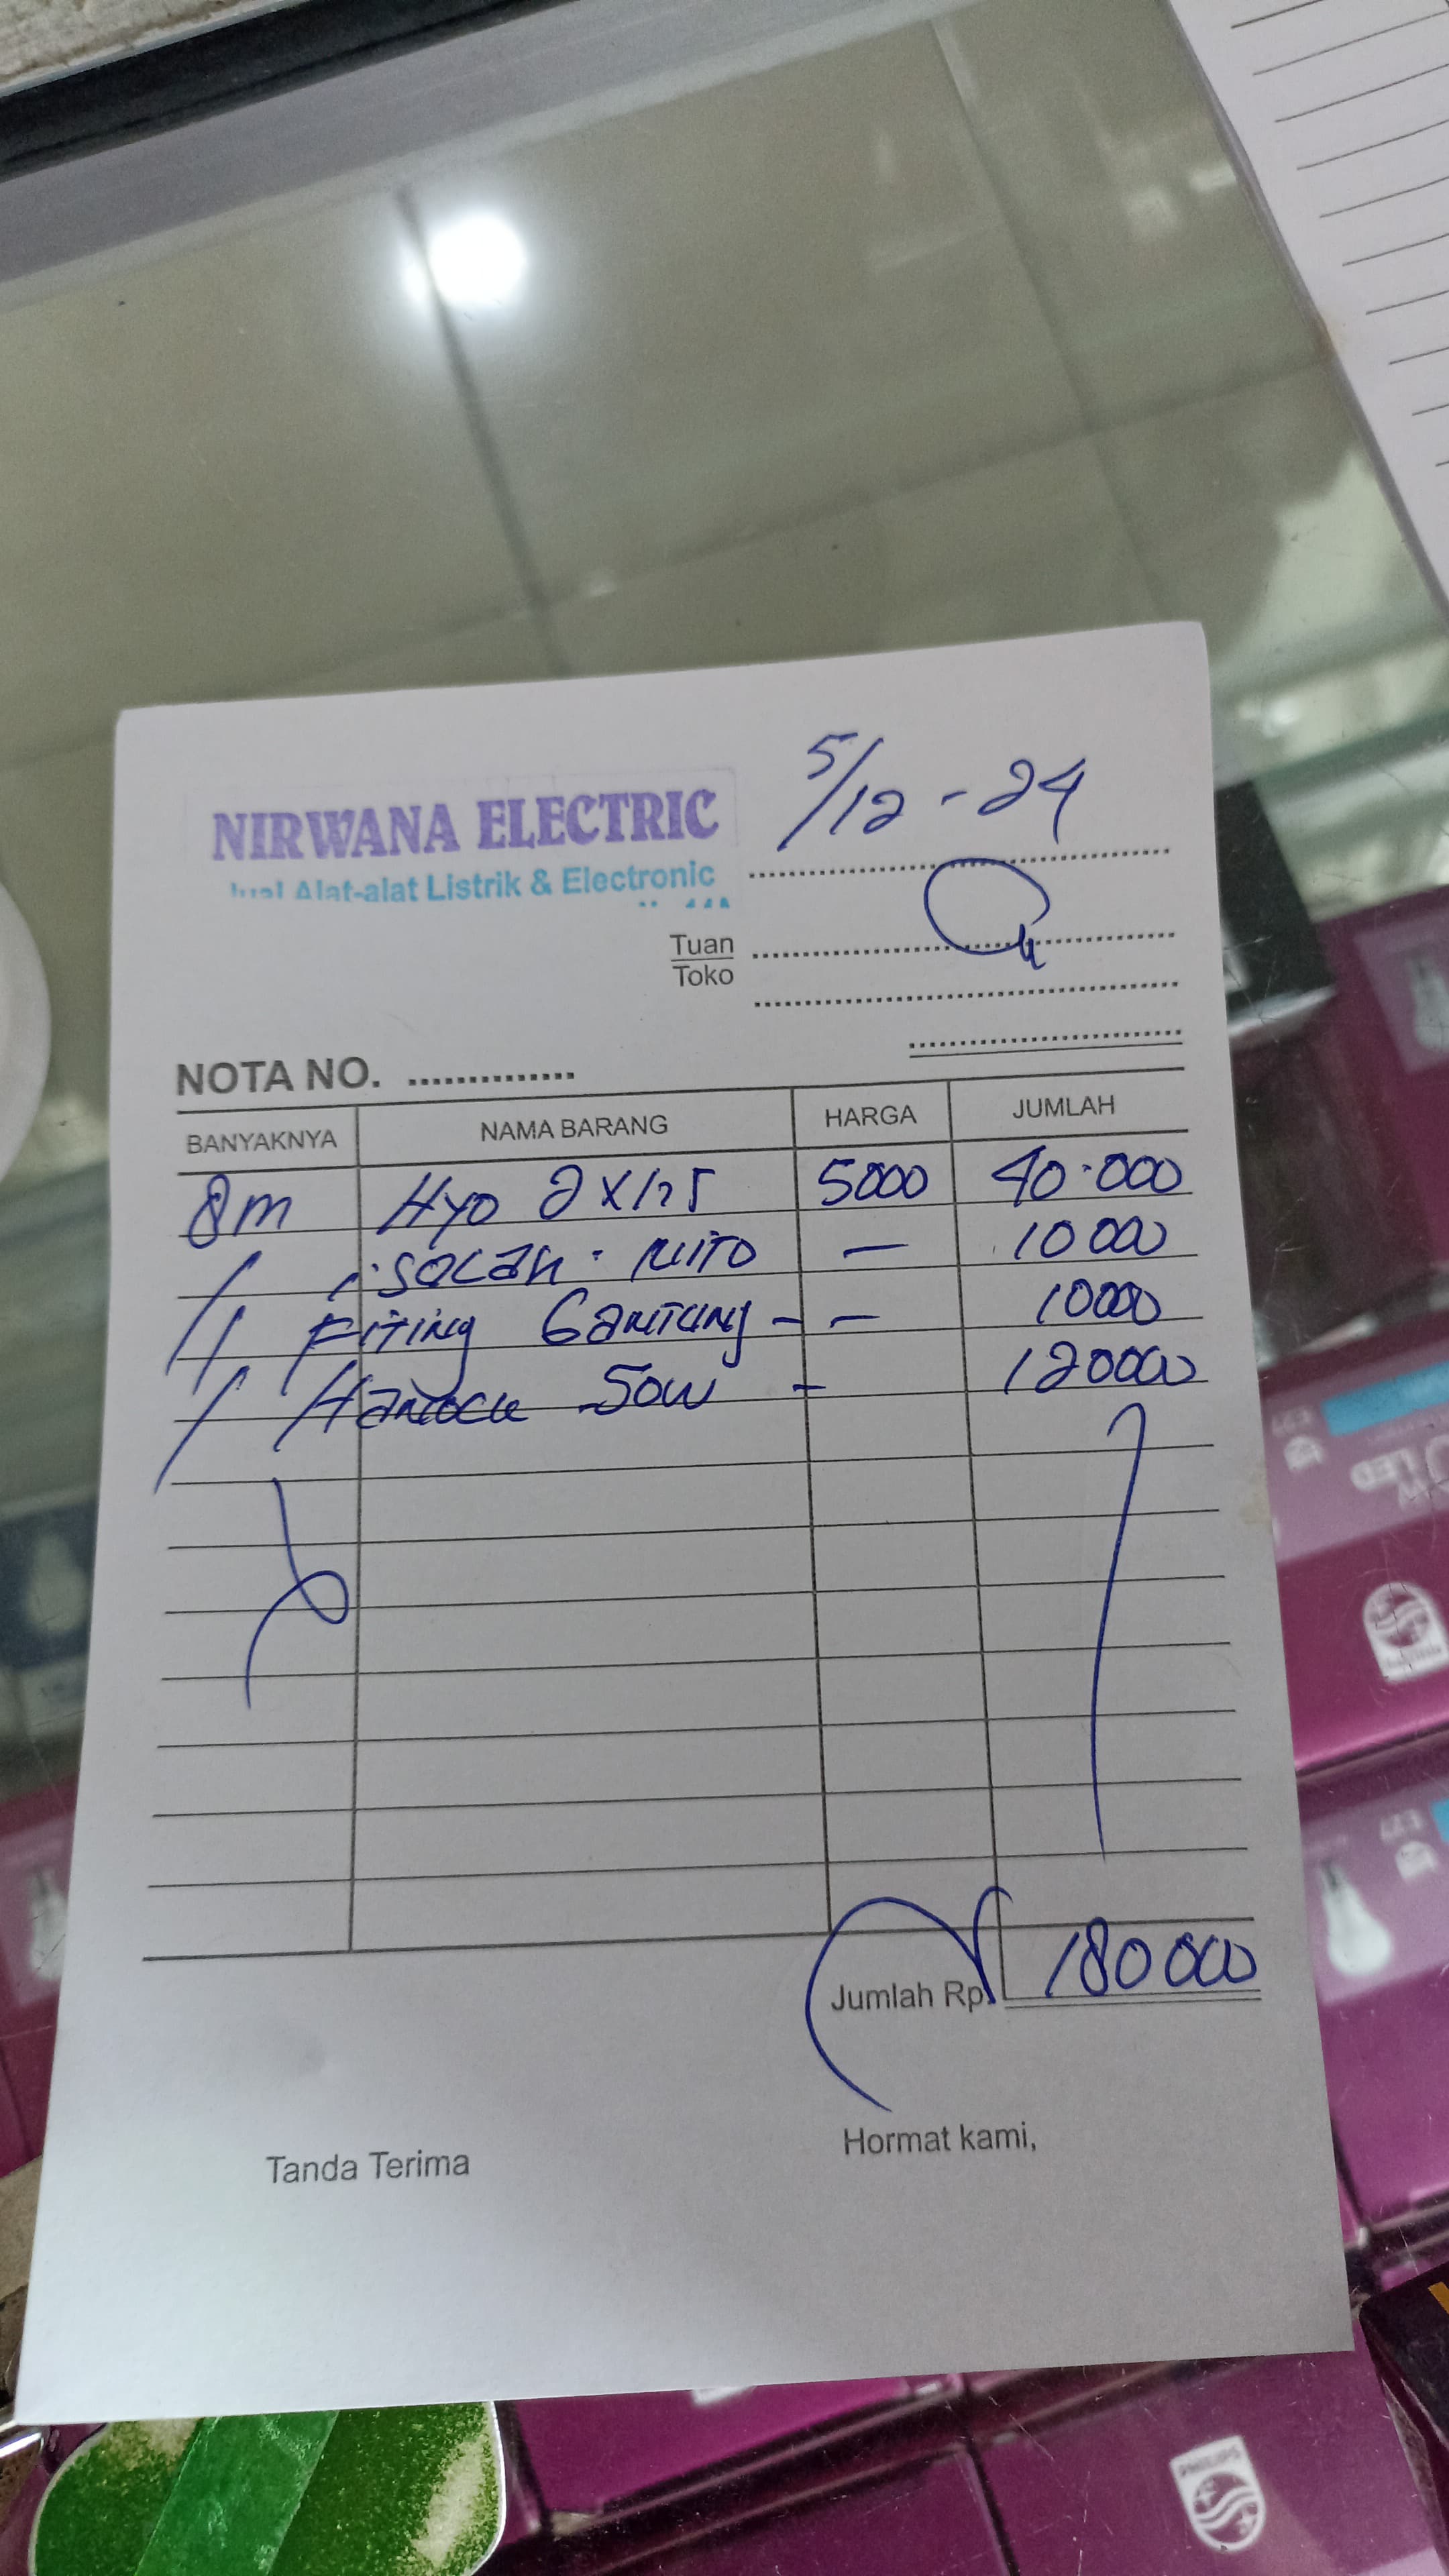 5/12 - 24
NIRWANA ELECTRIC
Jual Alat-alat Listrik & Electronic
Tuan
Toko
NOTA NO. ..............
BANYAKNYA NAMA BARANG HARGA JUMLAH
8m Hyo 2 x 1,5 5000 40.000
1 isolan. NITO — 10 000
1 Fiting Gantung - — 10000
1 Hanock 50W - 120000
Jumlah Rp. 180 000
Tanda Terima
Hormat kami,
PHILIPS